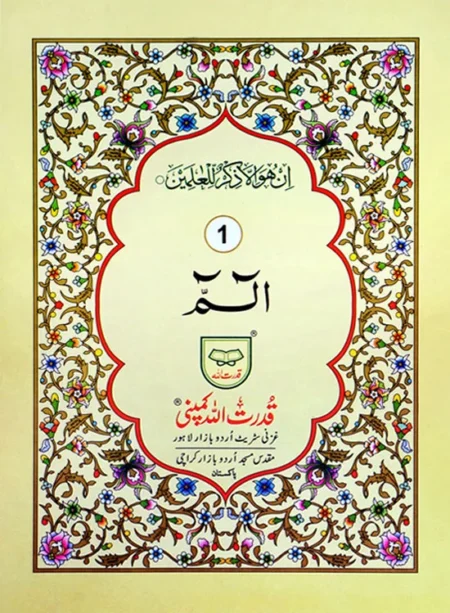 اِنْ هُوَ اِلَّا ذِكْرٌ لِّلْعٰلَمِيْنَ ○
1
الٓمّٓ
®
قدرت اللہ
قُدرتُ اللہ کمپنی ®
غزنی سٹریٹ اُردو بازار لاہور
مقدس مسجد اُردو بازار کراچی
پاکستان